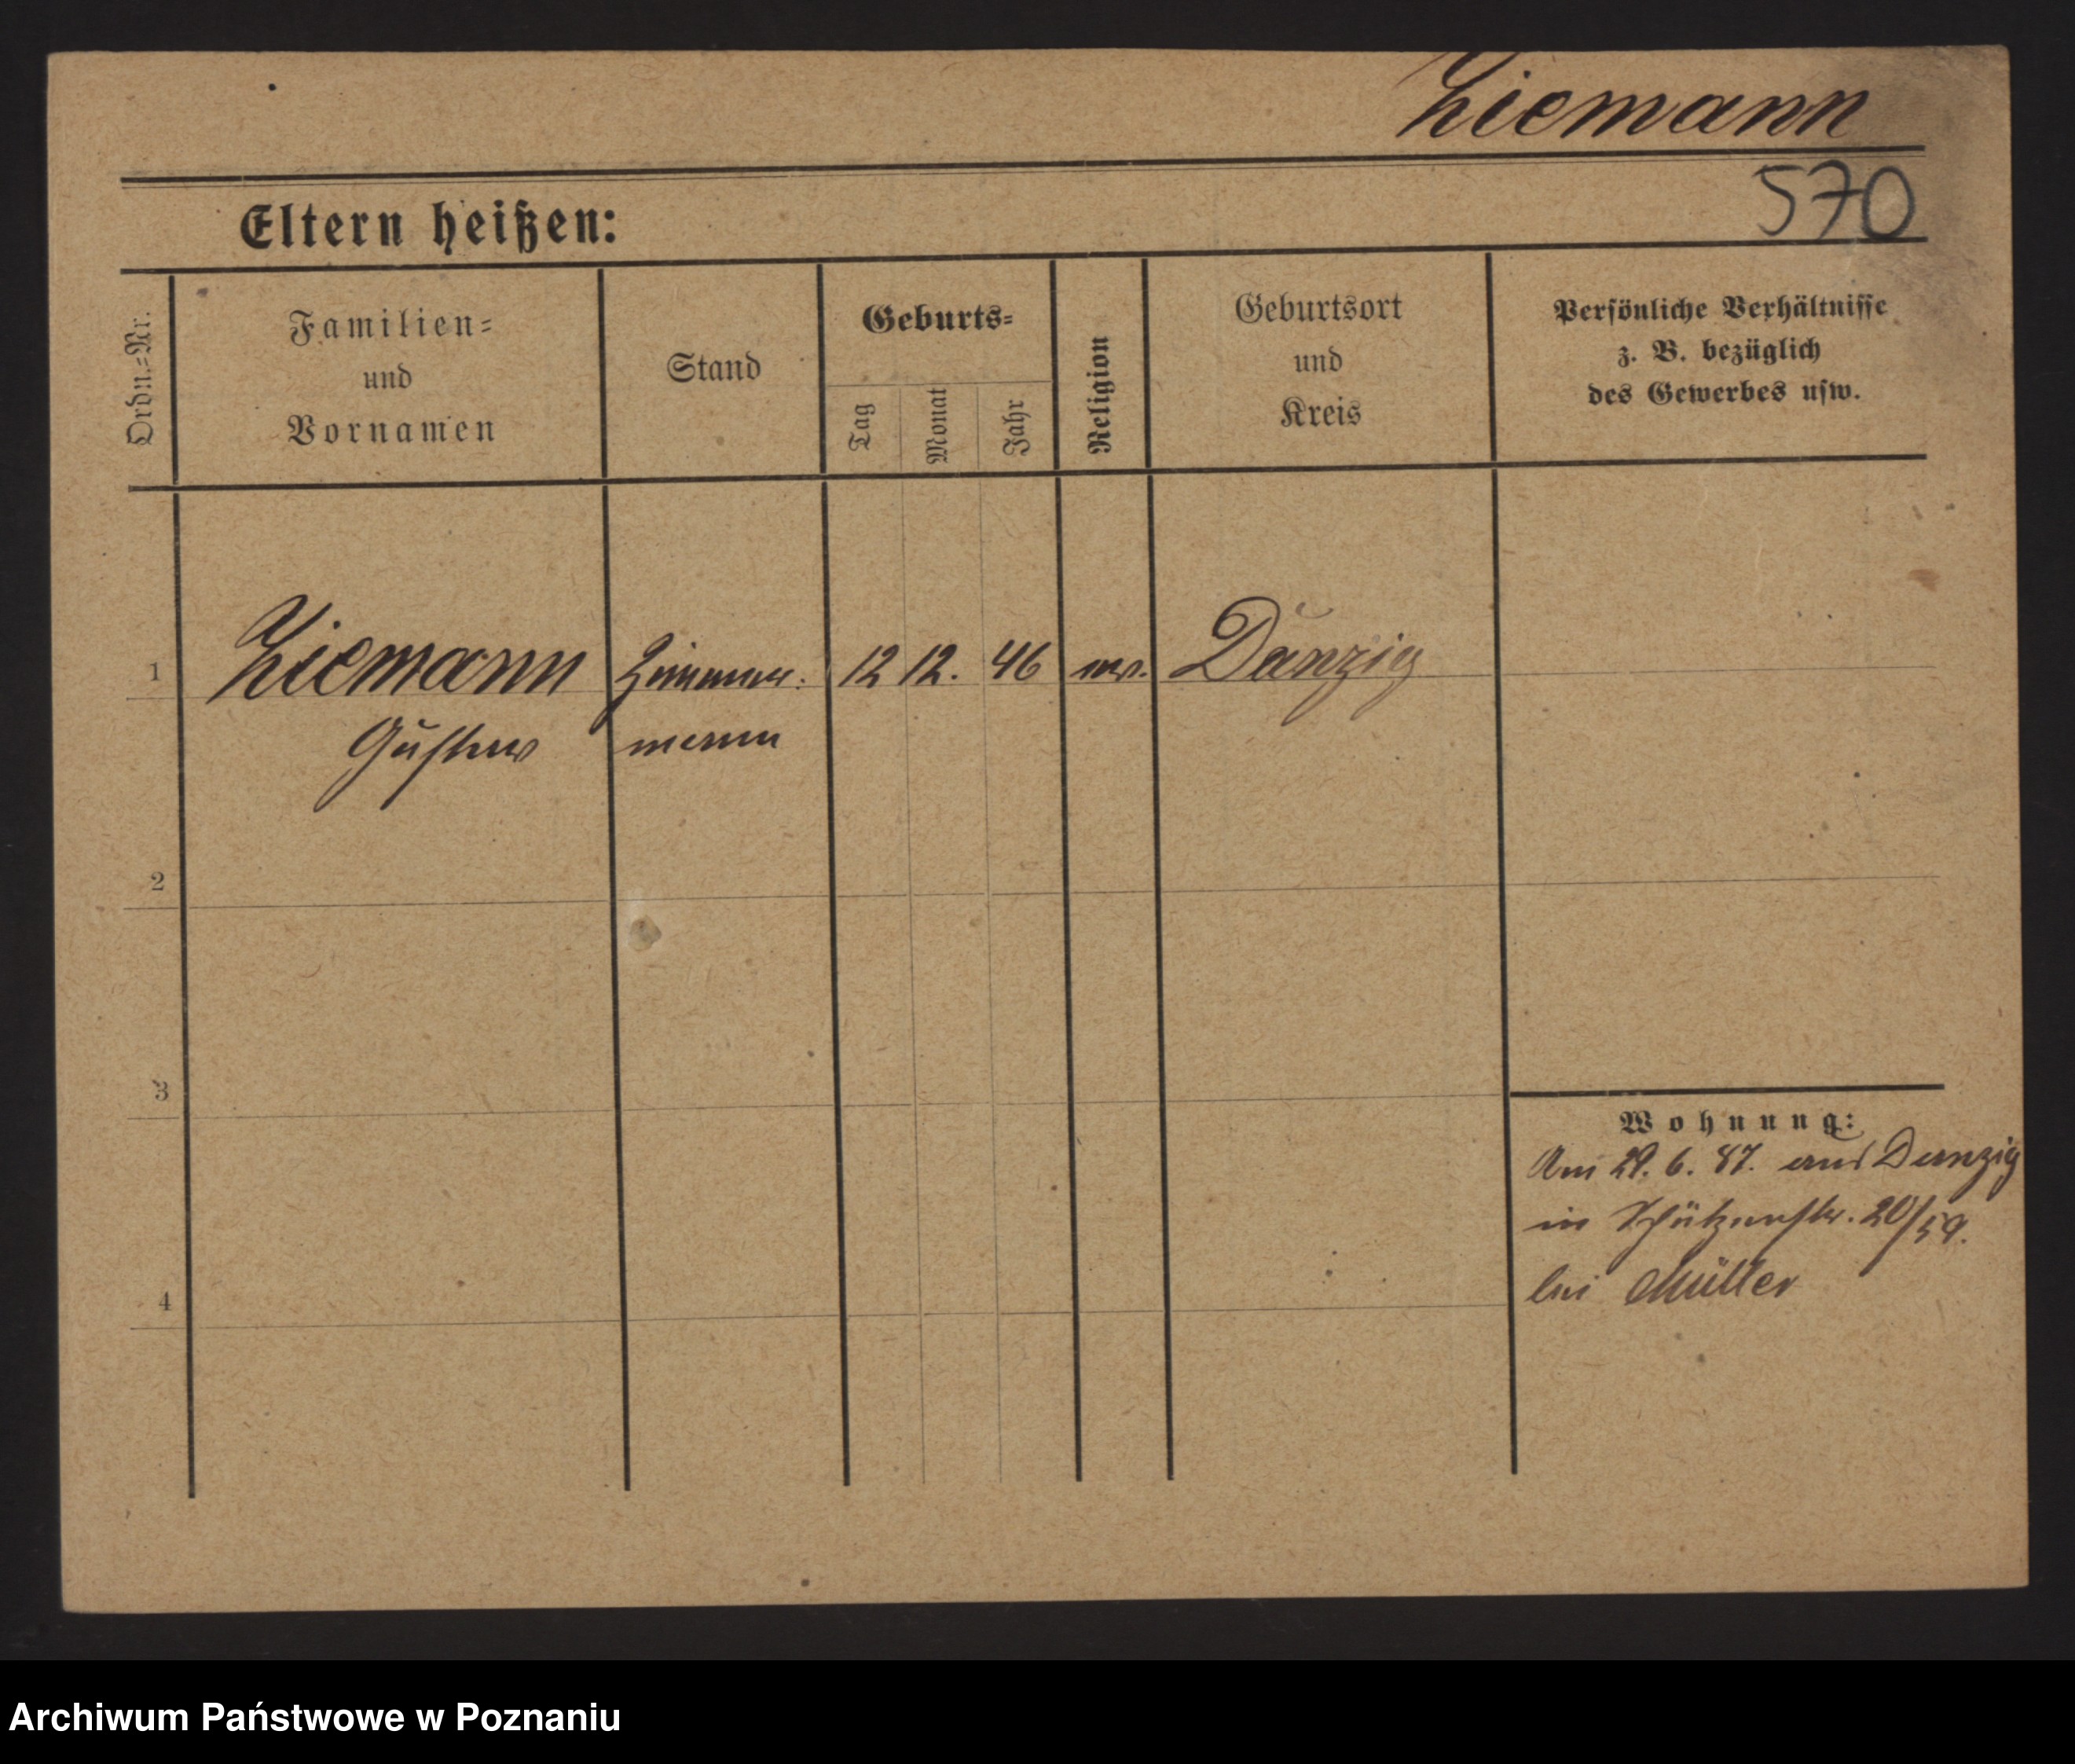 Ziemann
570
Eltern heißen:
Ordn.=Nr.
Familien=
und
Vornamen
Stand
Geburts=
Tag
Monat
Jahr
Religion
Geburtsort
und
Kreis
Persönliche Verhältnisse
z. B. bezüglich
des Gewerbes usw.
1 Ziemann Zimmer- 12 12. 46 ev. Danzig
Gustav mann
2
3
4
Wohnung:
Am 29. 6. 87. aus Danzig
in Schützenstr. 20/59.
bei Müller
Archiwum Państwowe w Poznaniu